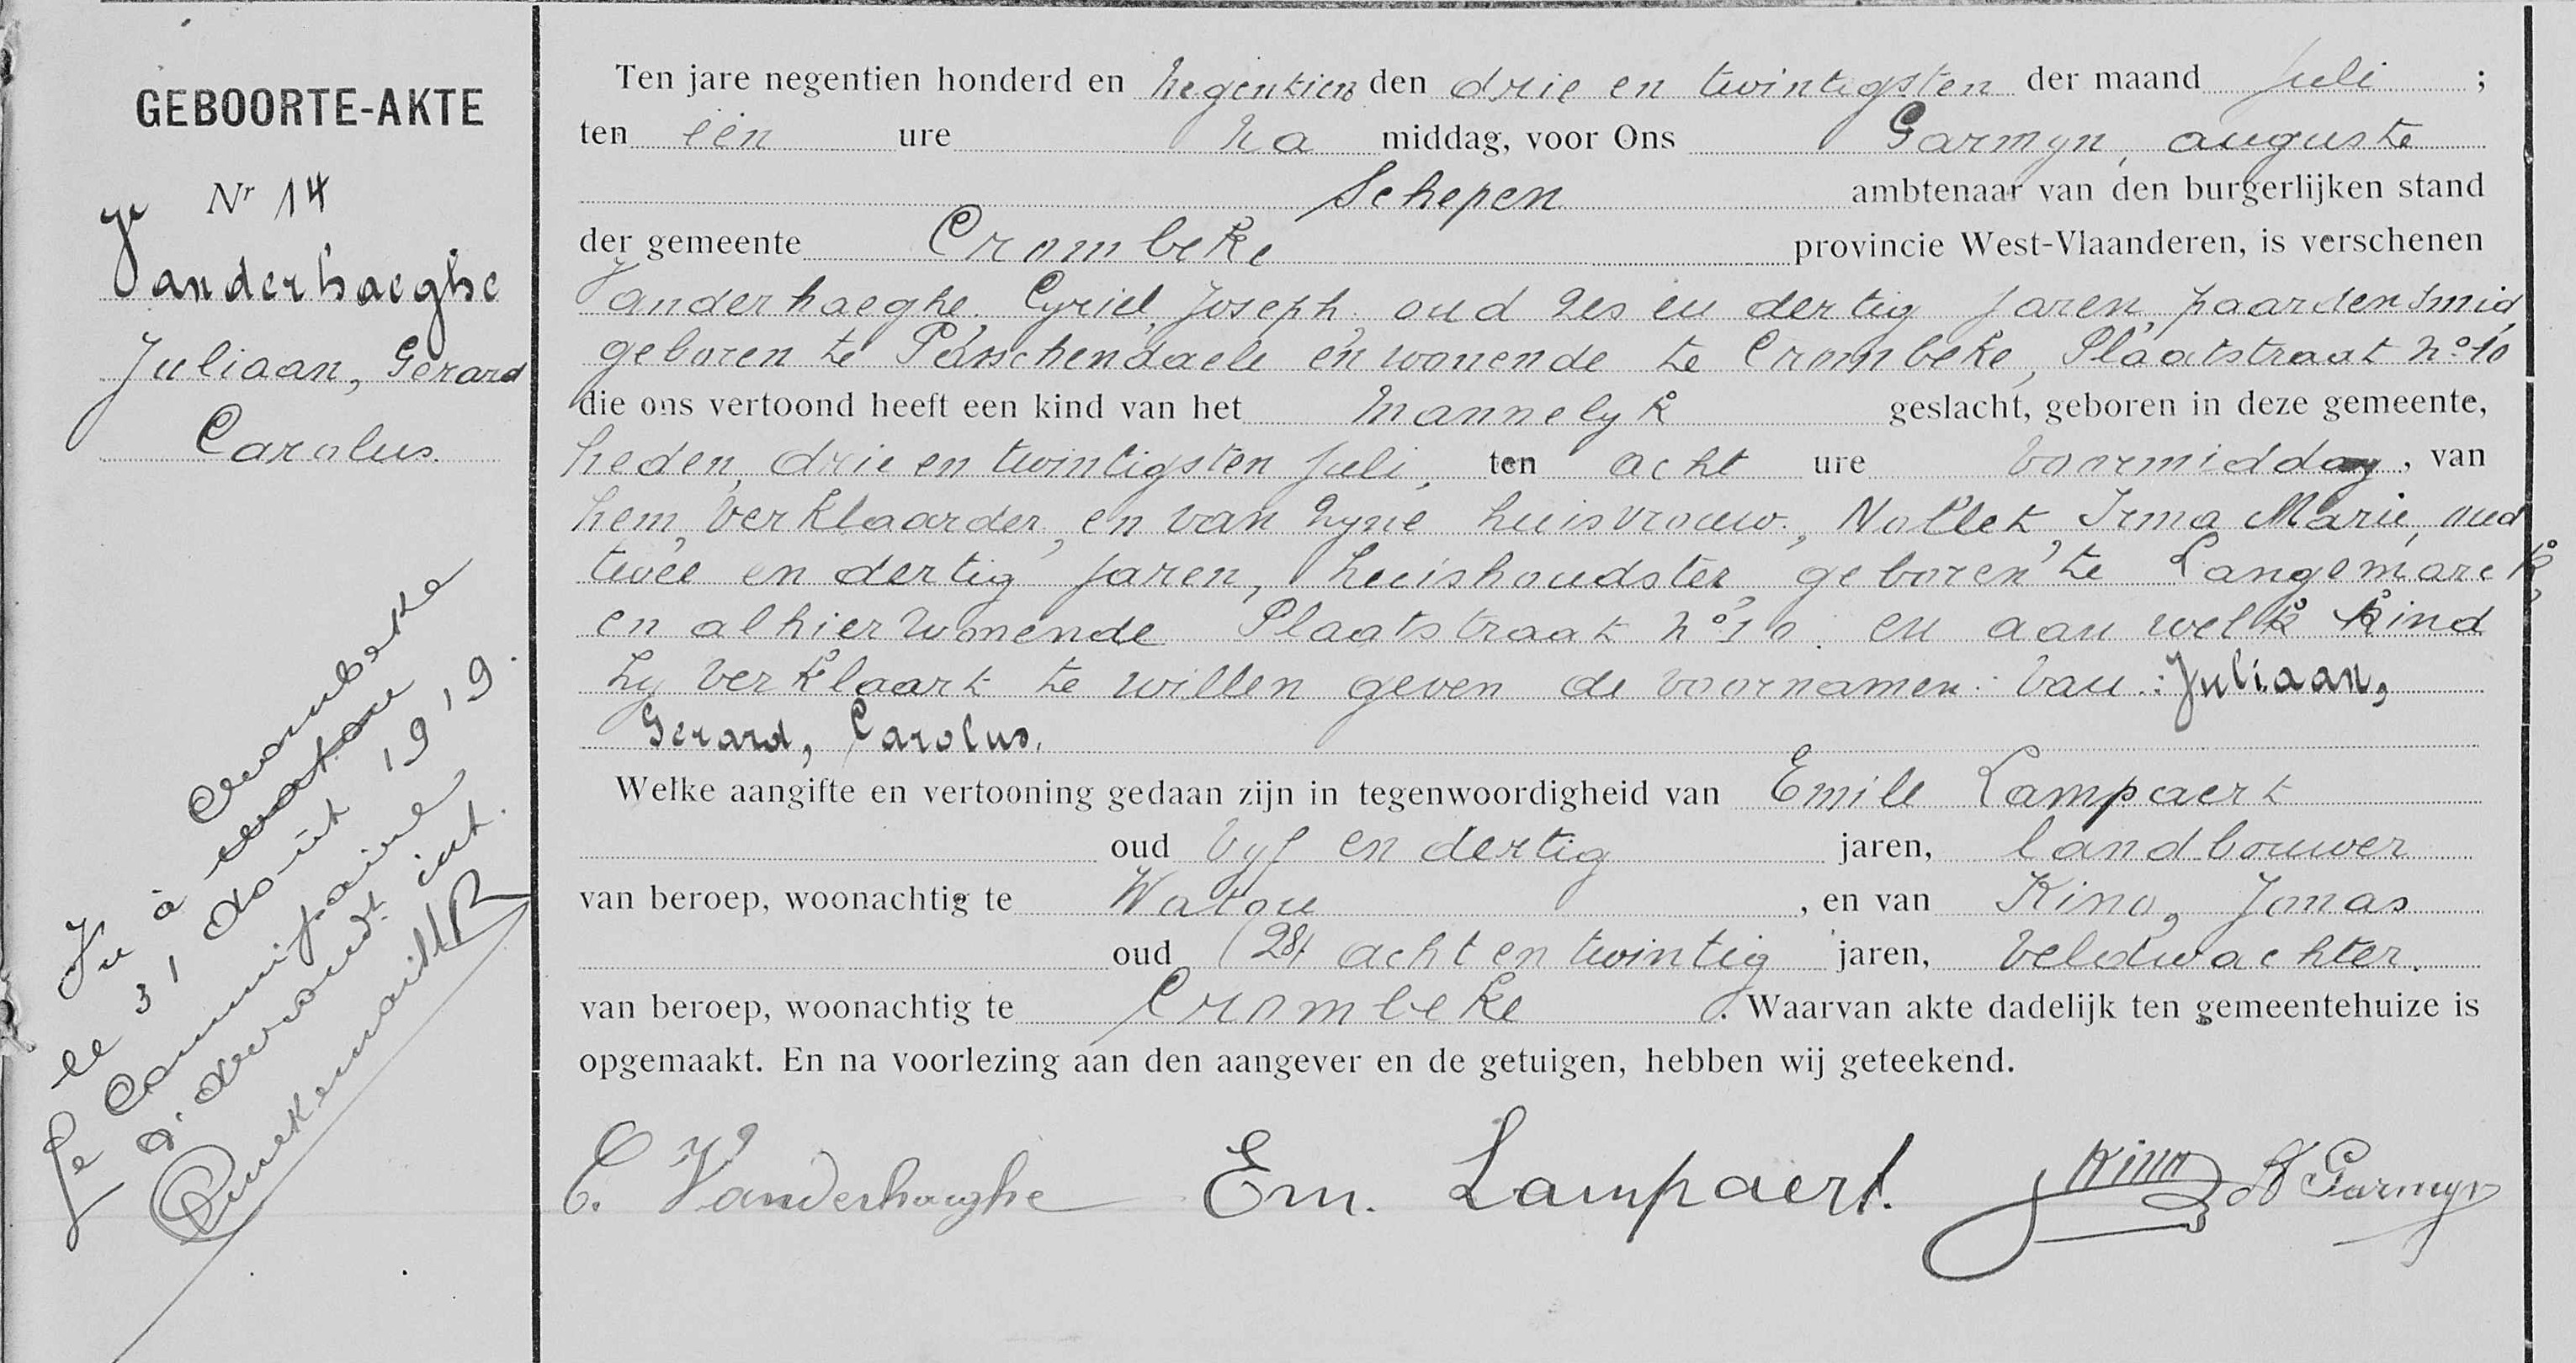 GEBOORTE-AKTE
Nr 14
Vanderhaeghe
Juliaan, Gerard
Carolus.
Vu à Crombeke
le 31 Août 1919.
Le Commissaire
d'arrondt. int.
Ten jare negentien honderd en negentien den drie en twintigsten der maand Juli ;
ten een ure na middag, voor Ons Garmyn, auguste
Schepen ambtenaar van den burgerlijken stand
der gemeente Crombeke provincie West-Vlaanderen, is verschenen
Vanderhaeghe, Cyriel, Joseph, oud zes en dertig jaren, paardensmid,
geboren te Passchendaele en wonende te Crombeke, Plaatstraat no 10
die ons vertoond heeft een kind van het mannelyk geslacht, geboren in deze gemeente,
heden, drie en twintigsten Juli, ten acht ure voormiddag, van
hem, verklaarder, en van zyne huisvrouw, Nollet, Irma Marie, oud
twee en dertig jaren, huishoudster, geboren te Langemarck,
en alhier wonende Plaatstraat no 10. en aan welk kind
hy verklaart te willen geven de voornamen van: Juliaan,
Gerard, Carolus.
Welke aangifte en vertooning gedaan zijn in tegenwoordigheid van Emile Lampaert
oud vyf en dertig jaren, landbouwer
van beroep, woonachtig te Watou, en van Kino, Jonas
oud (28) acht en twintig jaren, veldwachter.
van beroep, woonachtig te Crombeke. Waarvan akte dadelijk ten gemeentehuize is
opgemaakt. En na voorlezing aan den aangever en de getuigen, hebben wij geteekend.
C. Vanderhaeghe Em. Lampaert. J Kino A Garmyn